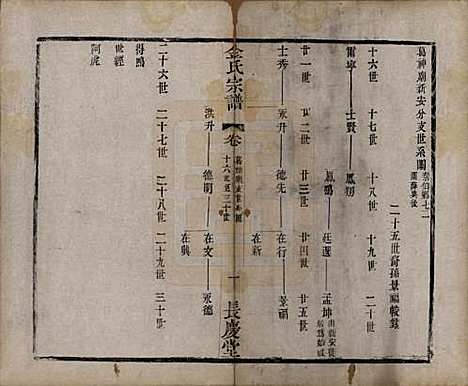 葛神廟新安分支世系圖
二十五世裔孫景福敬錄
十六世 十七世 十八世 十九世 二十世
甯 士賢 鳳翔
鳳鳴 廷選 孟坤
廿一世 廿二世 廿三世 廿四世 廿五世
士秀 永升 德先 在行 景福
在新
金氏宗譜 卷
十六世至三十世
一 長慶堂
洪升 德明 在文 永德
在興
二十六世 二十七世 二十八世 二十九世 三十世
得鳴
世經
阿虎